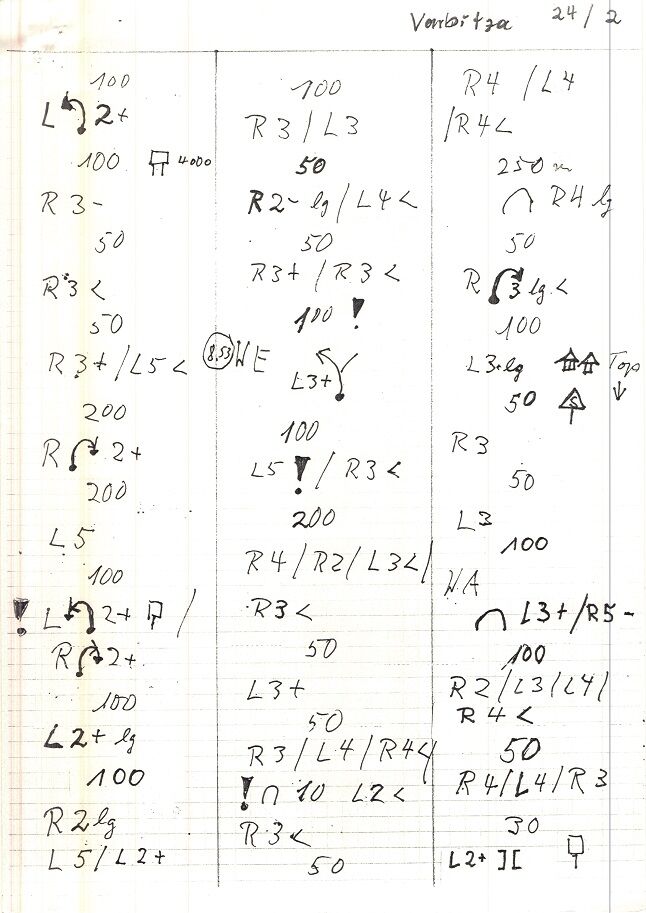 Vorbitza 24/2
100
L 2+
100 4000
R 3-
50
R 3 <
50
R 3+ / L5 <
200
R 2+
200
L 5
100
! L 2+ /
R 2+
100
L 2+ lg
100
R 2 lg
L 5 / L 2+
100
R 3 / L 3
50
R 2- lg / L 4 <
50
R3+ / R3 <
100 !
8.53 WE
L3+
100
L5 ! / R3 <
200
R4 / R2 / L3 < /
R3 <
50
L3+
50
R3 / L4 / R4 < /
! ∩ 10 L2 <
R3 <
50
R4 / L4
/ R4 <
250 m
∩ R4 lg
50
R 3 lg <
100
L3+ lg Top ↓
50 S
R3
50
L3
100
WA
∩ L3+ / R5-
100
R2 / L3 / L4 /
R4 <
50
R4 / L4 / R3
30
L2+ ][